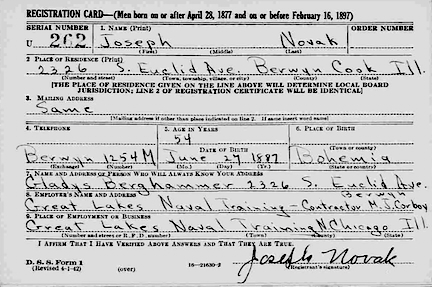 REGISTRATION CARD—(Men born on or after April 28, 1877 and on or before February 16, 1897)
SERIAL NUMBER 1. NAME (Print) ORDER NUMBER
U 202 Joseph Novak
(First) (Middle) (Last)
2. PLACE OF RESIDENCE (Print)
2326 S. Euclid Ave. Berwyn Cook Ill.
(Number and street) (Town, township, village, or city) (County) (State)
[THE PLACE OF RESIDENCE GIVEN ON THE LINE ABOVE WILL DETERMINE LOCAL BOARD
JURISDICTION; LINE 2 OF REGISTRATION CERTIFICATE WILL BE IDENTICAL]
3. MAILING ADDRESS
Same
[Mailing address if other than place indicated on line 2. If same insert word same]
4. TELEPHONE 5. AGE IN YEARS 6. PLACE OF BIRTH
54
DATE OF BIRTH (Town or county)
Berwyn 1254 M June 27 1887 Bohemia
(Exchange) (Number) (Mo.) (Day) (Yr.) (State or country)
7. NAME AND ADDRESS OF PERSON WHO WILL ALWAYS KNOW YOUR ADDRESS
Gladys Berghammer 2326 S. Euclid Ave.
8. EMPLOYER'S NAME AND ADDRESS Berwyn
Great Lakes Naval Training - Contractor M.J. Corboy
9. PLACE OF EMPLOYMENT OR BUSINESS
Great Lakes Naval Training N. Chicago Ill.
(Number and street or R. F. D. number) (Town) (County) (State)
I AFFIRM THAT I HAVE VERIFIED ABOVE ANSWERS AND THAT THEY ARE TRUE.
D. S. S. Form 1
(Revised 4-1-42) (over) 16—21630-2 Joseph Novak
(Registrant's signature)